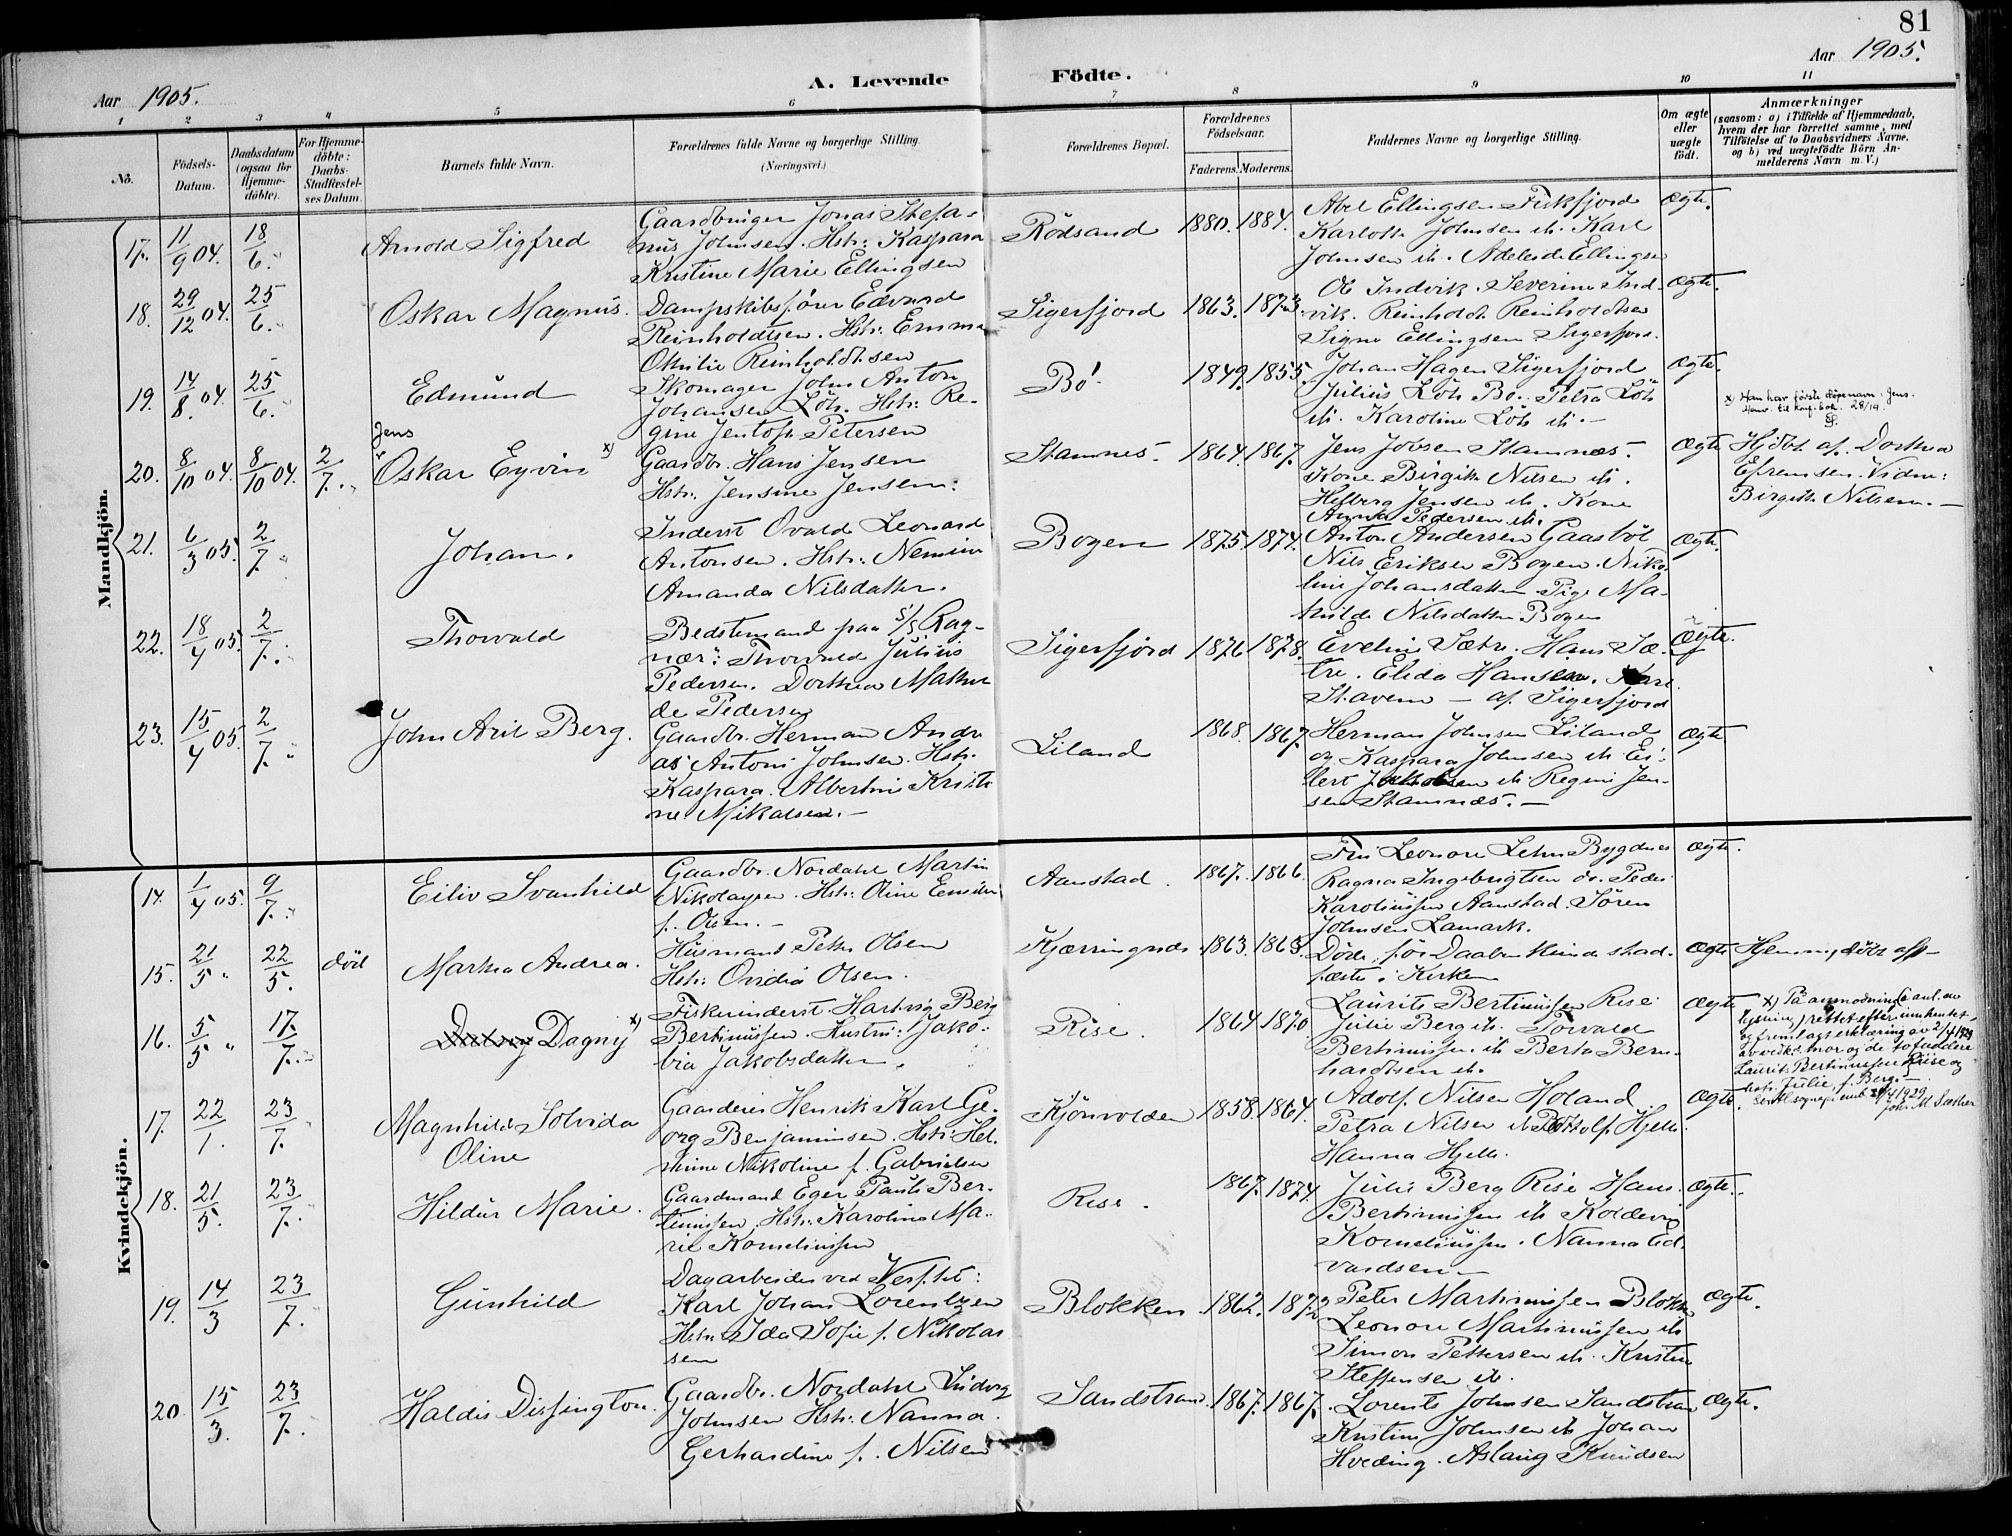 81
Aar 1905.
A. Levende Födte.
Aar 1905.
1 2 3 4 5 6 7 8 9 10 11
No.
Födsels-
Datum.
Daabsdatum
(ogsaa for
Hjemme-
döbte).
For Hjemme-
döbte:
Daabs-
Stadfæstel-
ses Datum.
Barnets fulde Navn.
Forældrenes fulde Navne og borgerlige Stilling
(Næringsvei.)
Forældrenes Bopæl.
Forældrenes
Födselsaar.
Faderens. Moderens.
Faddernes Navne og borgerlige Stilling.
Om ægte
eller
uægte
födt.
Anmærkninger
(saasom: a) i Tilfælde af Hjemmedaab,
hvem der har forrettet samme, med
Tilföielse af to Daabsvidners Navne.
og b) ved uægtefödte Börn An-
melderens Navn m.V.)
Mandkjön.
17. 11/9 04. 18/6.
Arnold Sigfred
Gaardbruger Jonas Stefa-
nus Johnsen. Hstr: Kaspara
Kristine Marie Ellingsen
Rödsand 1880. 1884.
Abel Ellingsen Fiskfjord
Karlotte Johnsen ib. Karl
Johnsen ib. Adeleide Ellingsen
Ægte.
18. 29/12 04. 25/6.
Oskar Magnus.
Dampskibsförer Edvard
Reinholdtsen. Hstr: Emma
Othilie Reinholdtsen
Sigerfjord 1863. 1873.
Ol Indvik. Severine Ind-
vik. Reinholdt Reinholdtsen
Signe Ellingsen Sigerfjord.
Ægte.
19. 14/8. 04. 25/6.
Edmund
Skomager John Anton
Johansen Löh. Hstr: Re-
gine Jentoft Petersen
Bö. 1849. 1855.
Johan Hagen Sigerfjord
Julius Löh Bö. Petra Löh
ib. Karoline Löh ib.
Ægte.
x) Han har første døpenavn: Jens.
20. 8/10 04. 8/10 04. 2/7.
Jens
Oskar Eyvin x)
Gaardbr. Hans Jensen
Hstr: Jensine Jensen.
Stamnes. 1864. 1867.
Jens Jobsen Stamnæs.
Kone Birgitte Nilsen ib.
Helberg Jensen ib. Kone
Anna Pedersen ib.
Ægte
Hjdbt af Dorthea
Efremsen. Vidne:
Birgitte Nilsen.
21. 6/3 05. 2/7.
Johan.
Inderst Ovald Leonard
Antonsen. Hstr: Nemine
Amanda Nilsdatter.
Bogen 1875. 1874.
Anton Andersen Gaasböl
Nils Eriksen Bogen. Niko-
line Johansdatter Pige Ma-
thilde Nilsdatter Bogen
Ægte.
22. 18/4 05. 2/7.
Thorvald
Bedstemand paa S/S Rag-
nær: Thorvald Julius
Pedersen. Dorthea Mathil-
de Pedersen
Sigerfjord 1876 1878.
Eveline Sætre. Hans Sæ-
tre. Elida Hansen. Kari
Stavem - af Sigerfjord
Ægte.
23. 15/4 05. 2/7.
John Aril Berg.
Gaardbr. Herman Andre
as Antoni Johnsen. Hstr.
Kaspara Albertine Kristi
ne Mikalsen.
Liland 1868. 1867.
Herman Johnsen Liland
og Kaspara Johnsen ib Ei-
lert Jakobsen ib. Regine Jen-
sen Stamnæs.
Ægte
Kvindekjön.
14. 1/4 05. 9/7.
Eiliv Svanhild
Gaardbr. Nordahl Martin
Nikolaysen. Hstr: Oline
f. Olsen.
Aanstad. 1867. 1866.
Fru Leonore Lehn Bygdnes
Ragna Ingebrigtsen
Karoliussen Aanstad. Sören
Johnsen Lamark.
Ægte.
15. 21/5 22/5. död
Martha Andrea.
Husmand Peder Olsen
Hstr: Ovidia Olsen.
Kjærringnes. 1863. 1863.
Döde, för Daaben kunde stad-
fæstes i Kirken
Ægte Hjemmedöbt af
16. 5/5 17/7.
Dagny x)
Fiskerinderst. Hartvig Berg
Bertinussen. Hustru: Jako-
bia Jakobsdatter.
Rise. 1864 1870
Laurits Bertinussen Rise
Julie Berg ib. Torvald
Bertinussen ib Berta Bern-
hardtsen ib.
Ægte
x) På anmodning
rettet efter innhentet
og fremlagt erklæring av
av vedk. mor og de to faddere
Laurits Bertinussen Riise og
hstr. Julie, f. Berg.
1929
Joh. M. Sæther
17. 22/1. 23/7.
Magnhild Solvida
Oline
Gaardeier Henrik Karl Ge-
org Benjaminsen. Hstr: Hel-
mine Nikoline f. Gabrielsen
Kjönvolden 1858. 1864.
Adolf Nilsen Holand
Petra Nilsen ib Rolf Hjelle.
Hanna Hjelle.
Ægte.
18. 21/5. 23/7.
Hildur Marie.
Gaardmand Eger Pauli Ber-
tinussen. Hstr: Karoline Ma-
rie Korneliussen
Rise. 1867. 1874.
Julie Berg Rise Hans
Bertinussen ib Koldevin
Korneliussen. Nanna Ed-
vardsen
Ægte.
19. 14/3 23/7.
Gunhild
Dagarbeider ved Verftet:
Karl Johan Lorentzen
Hstr: Ida Sofie f. Nikolai
sen
Blokken 1862. 1872.
Peter Martinussen Blokken
Leonore Martinussen ib
Simon Pettersen ib. Kristine
Steffensen ib.
Ægte.
20. 15/3. 23/7.
Haldis Dissington.
Gaardbr. Nordahl Ludvig
Johnsen Hstr: Nanna
Gerhardine f. Nilsen
Sandstrand. 1867. 1867.
Lorents Johnsen Sandstran
Kristine Johnsen ib Johan
Hveding. Aslaug Knudsen
Ægte.